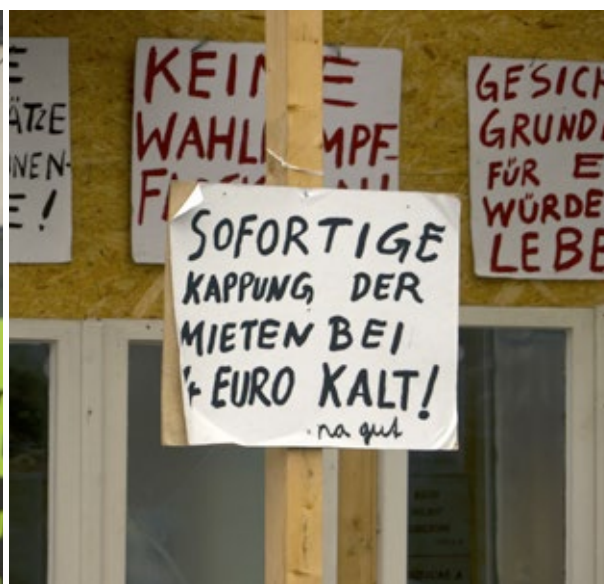 E
ÄTZE
NEN-
E!
KEINE
WAHLKAMPF-
GESICH
GRUND
FÜR E
WÜRDE
LEBE
SOFORTIGE
KAPPUNG DER
MIETEN BEI
4 EURO KALT!
na gut